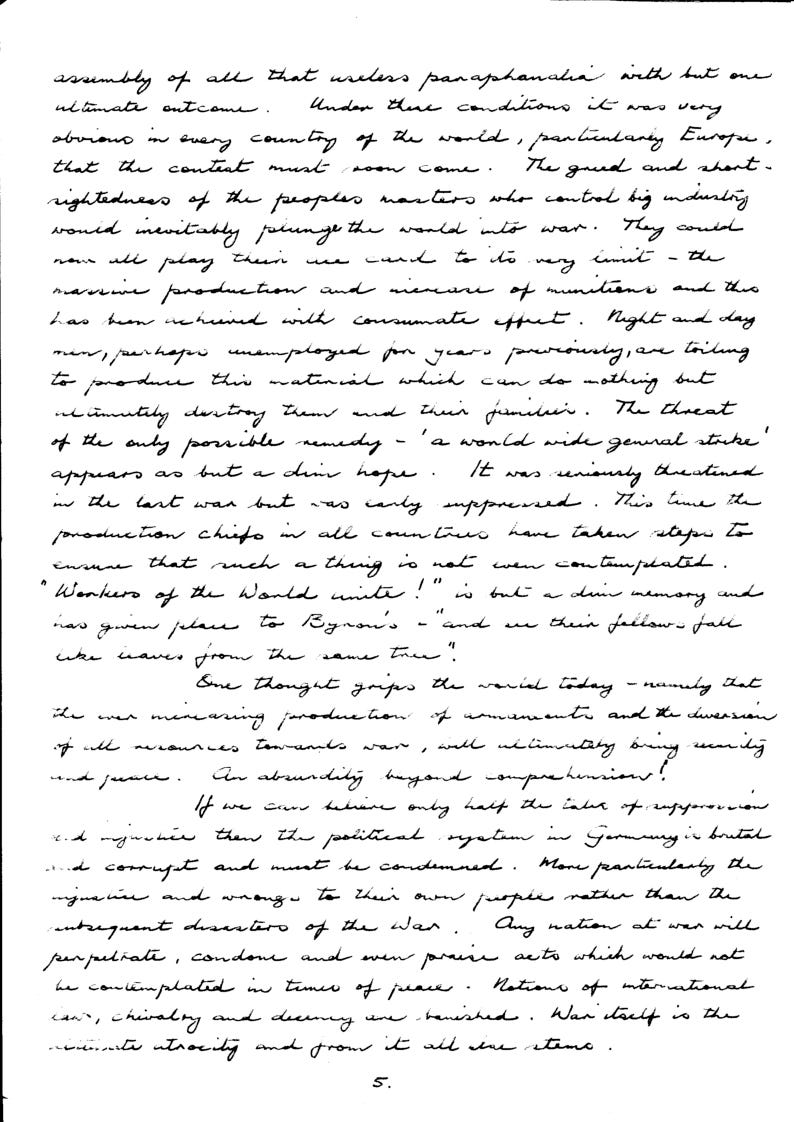 assembly of all that useless paraphanalia with but one
ultimate outcome. Under these conditions it was very
obvious in every country of the world, particularly Europe,
that the contest must soon come. The greed and short-
sightedness of the peoples masters who control big industry
would inevitably plunge the world into war. They could
now all play their ace card to its very limit - the
massive production and increase of munitions and this
has been achieved with consumate effect. Night and day
men, perhaps unemployed for years previously, are toiling
to produce this material which can do nothing but
ultimately destroy them and their families. The threat
of the only possible remedy - 'a world wide general strike'
appears as but a dim hope. It was seriously threatened
in the last war but was early suppressed. This time the
production chiefs in all countries have taken steps to
ensure that such a thing is not even contemplated.
"Workers of the World unite!" is but a dim memory and
has given place to Byron's - "and see their fellows fall
like leaves from the same tree".
One thought grips the world today - namely that
the ever increasing production of armaments and the diversion
of all resources towards war, will ultimately bring security
and peace. An absurdity beyond comprehension!
If we can believe only half the tales of suppression
and injustice then the political system in Germany is brutal
and corrupt and must be condemned. More particularly the
injustice and wrongs to their own people rather than the
subsequent disasters of the War. Any nation at war will
perpetrate, condone and even praise acts which would not
be contemplated in times of peace. Notions of international
law, chivalry and decency are banished. War itself is the
ultimate atrocity and from it all else stems.
5.